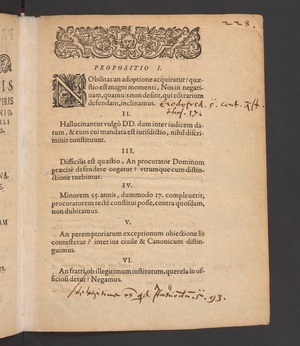 228.
PROPOSITIO I.
NObilitas an adoptione acquiratur? quæ-
stio est magni momenti, Nos in negati-
uam, quamuis non desint, qui cōtrarium
defendant, inclinamus.
II.
Hallucinantur vulgò DD. dum inter iudicem da-
tum, & eum cui mandata est iurisdictio, nihil discri-
minis constituunt.
III.
Difficilis est quæstio, An procurator Dominum
præcisè defendere cogatur? vtrumque cum distin-
ctione tuebimur.
IV.
Minorem 25. annis, dummodo 17. compleuerit,
procuratorem rectè constitui posse, contra quosdam,
non dubitamus.
V.
An peremptoriarum exceptionum obiectione lis
contestetur? inter ius ciuile & Canonicum distin-
guimus.
VI.
An fratri, ob illegitimum institutum, querela in of-
ficiosi detur? Negamus.
93.